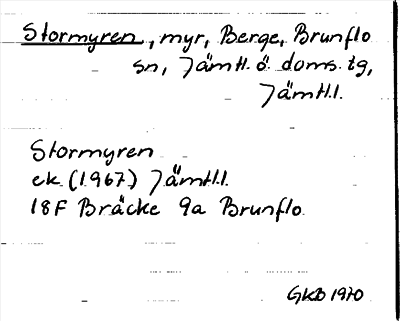 Stormyren, myr, Berge, Brunflo
sn, Jämtl. ö. doms. tg,
Jämtl.l.
Stormyren
ek. (1967) Jämtl.l.
18F Bräcke 9a Brunflo
GKB 1970